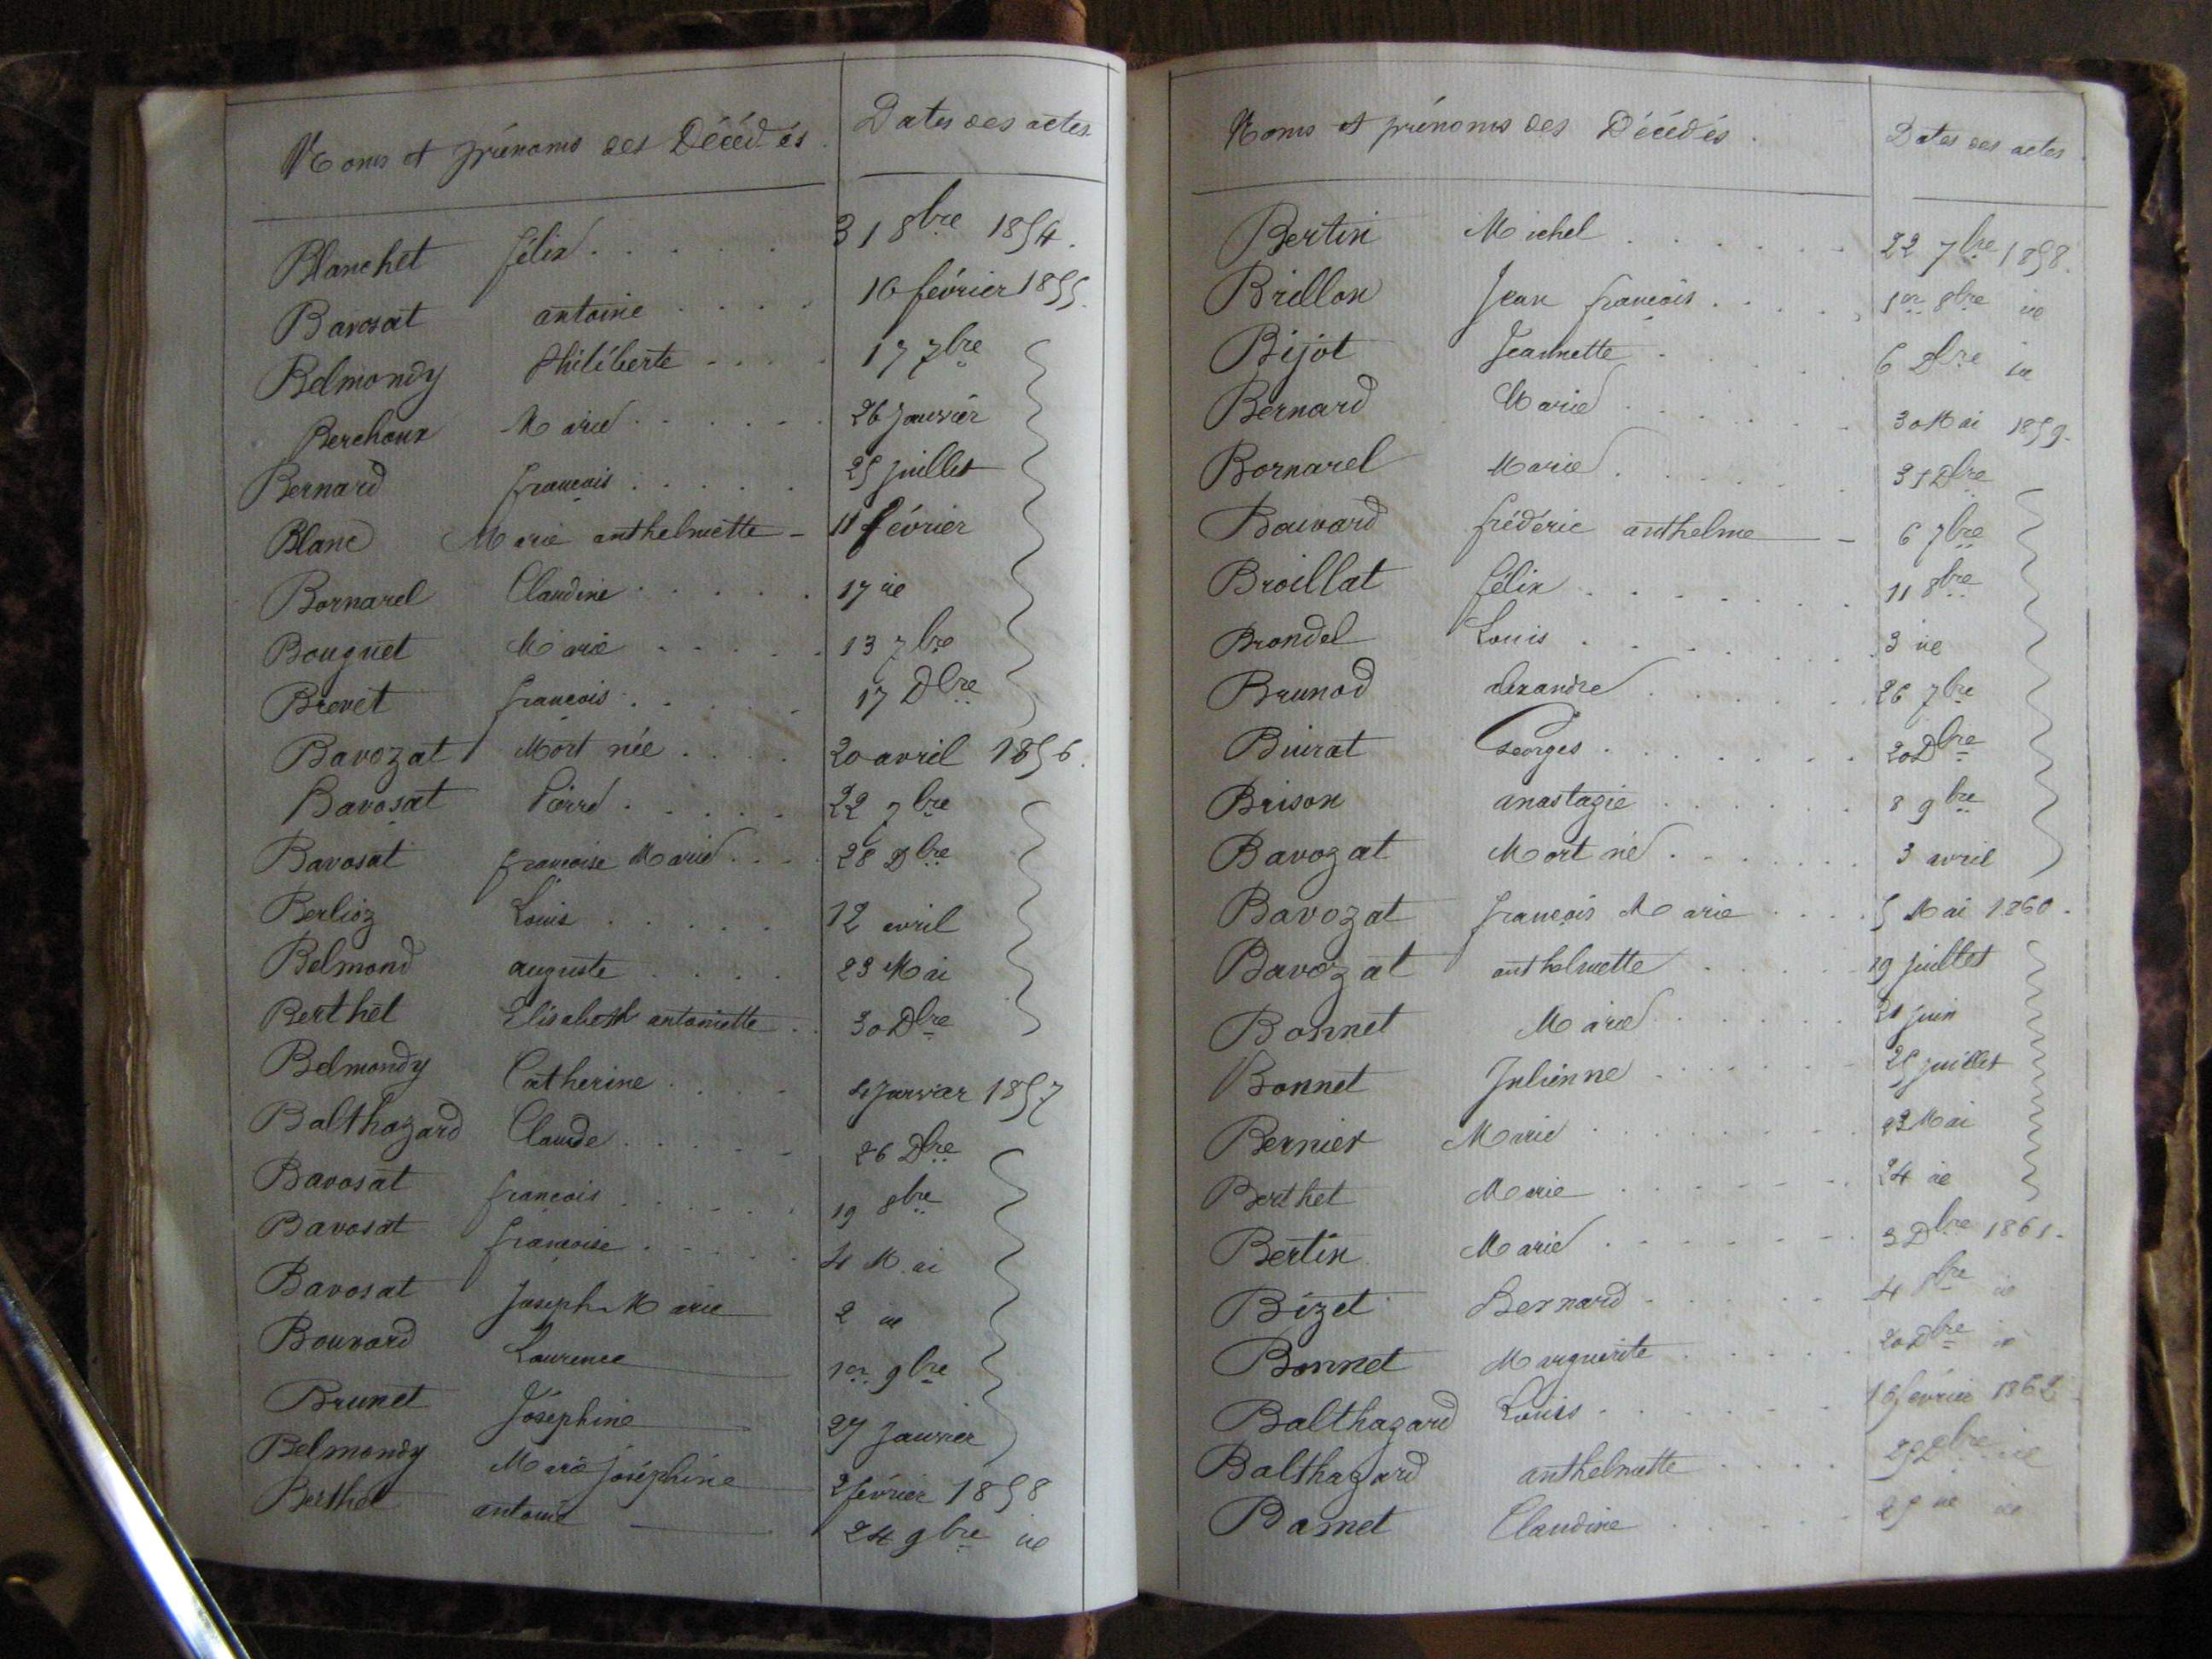 Noms et prénoms des Décédés. Dates des actes
Blanchet félix 31 8bre 1854.
Bavosat antoine 16 février 1855.
Belmondy Philiberte 17 7bre
Berchoux Marie 26 Janvier
Bernard françois 25 juillet
Blanc Marie anthelmette 11 février
Bornarel Claudine 17 id
Bouquet Marie 13 7bre
Brevet françois 17 Dbre
Bavozat Mort née 20 avril 1856.
Bavosat Pierre 22 7bre
Bavosat françoise Marie 28 Dbre
Berlioz Louis 12 avril
Belmond auguste 23 Mai
Berthet Elisabeth antoinette 30 Dbre
Belmondy Catherine 4 Janvier 1857
Balthazard Claude 26 Dbre
Bavosat françois 19 8bre
Bavosat françoise 4 Mai
Bavosat Joseph Marie 2 id
Bouvard Laurence 1er 9bre
Brunet Joséphine 27 Janvier
Belmondy Marie Joséphine 2 février 1858
Berthet antoine 24 9bre id
Noms et prénoms des Décédés. Dates des actes.
Bertin Michel 22 7bre 1858.
Brillon Jean françois 1er 8bre id
Bijot Jeannette 6 Dbre id
Bernard Marie 30 Mai 1859.
Bornarel Marie 31 Dbre
Bouvard frédéric anthelme 6 7bre
Broillat félix 11 8bre
Brondel Louis 3 id
Brunod alexandre 26 7bre
Biurat Georges 20 Dbre
Brison anastazie 8 9bre
Bavozat Mort né 3 avril
Bavozat françois Marie 5 Mai 1860.
Bavozat anthelmette 19 juillet
Bonnet Marie 21 juin
Bonnet Julienne 25 juillet
Bernier Marie 23 Mai
Berthet Marie 24 id
Bertin Marie 3 Dbre 1861.
Bizet Bernard 4 8bre id
Bonnet Marguerite 20 Dbre id
Balthazard Louis 16 février 1862
Balthazard anthelmette 29 Dbre id
Bamet Claudine 25 id id